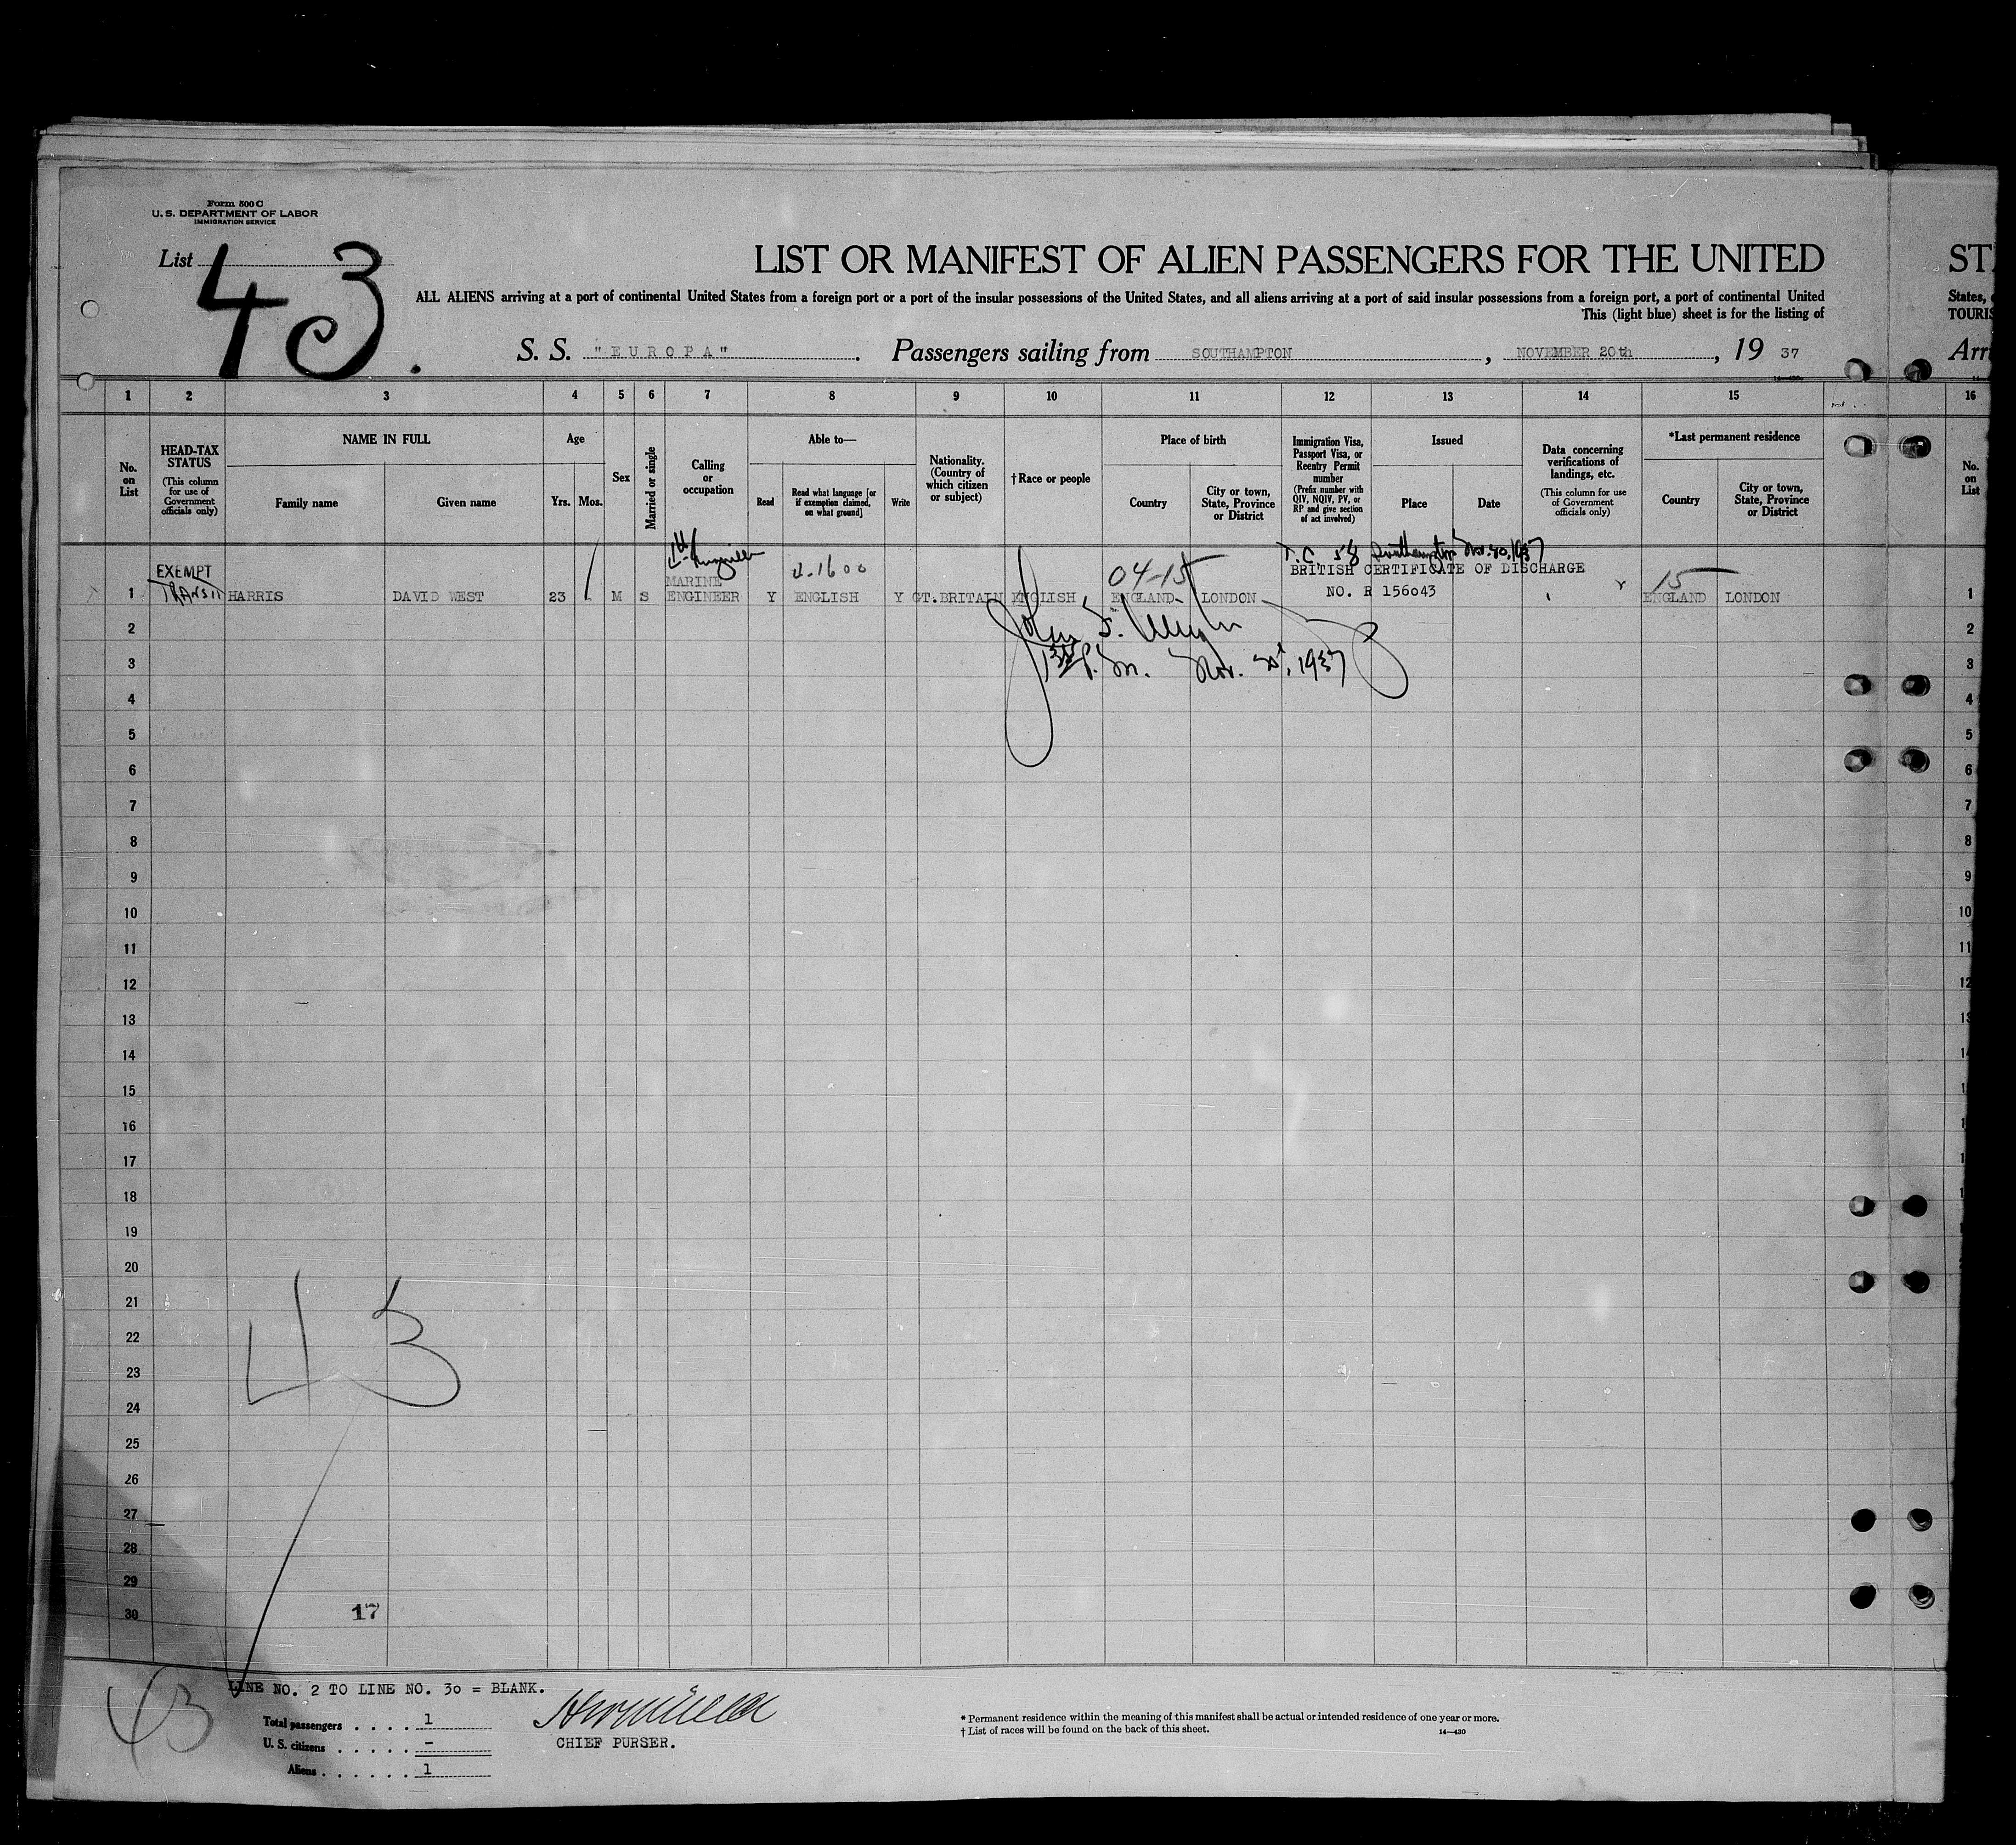 Form 500 C
U. S. DEPARTMENT OF LABOR
IMMIGRATION SERVICE
List 43.
LIST OR MANIFEST OF ALIEN PASSENGERS FOR THE UNITED
ST
ALL ALIENS arriving at a port of continental United States from a foreign port or a port of the insular possessions of the United States, and all aliens arriving at a port of said insular possessions from a foreign port, a port of continental United
States,
This (light blue) sheet is for the listing of
TOURIS
S. S. "EUROPA". Passengers sailing from SOUTHAMPTON, NOVEMBER 20th, 19 37
Arri
1 2 3 4 5 6 7 8 9 10 11 12 13 14 15 16
No. on List
HEAD-TAX STATUS
(This column for use of Government officials only)
NAME IN FULL
Family name
Given name
Age
Yrs.
Mos.
Sex
Married or single
Calling or occupation
Able to—
Read
Read what language [or if exemption claimed, on what ground]
Write
Nationality. (Country of which citizen or subject)
† Race or people
Place of birth
Country
City or town, State, Province or District
Immigration Visa, Passport Visa, or Reentry Permit number
(Prefix number with QIV, NQIV, PV, or RP and give section of act involved)
Issued
Place
Date
Data concerning verifications of landings, etc.
(This column for use of Government officials only)
*Last permanent residence
Country
City or town, State, Province or District
No. on List
4th Engineer
T.C. 58 Southampton Nov. 20, 1937
EXEMPT
MARINE
4-1600
04-15
BRITISH CERTIFICATE OF DISCHARGE
15
1 TRANSIT HARRIS DAVID WEST 23 M S ENGINEER Y ENGLISH Y GT.BRITAIN ENGLISH ENGLAND LONDON NO. R 156043 ENGLAND LONDON 1
2 John F. 2
3 Nov. 20, 1937 3
4 4
5 5
6 6
7 7
8 8
9 9
10 10
11 11
12 12
13
14
15
16
17
18
19
20
21
22
43
23
24
25
26
27
28
29
30 17
LINE NO. 2 TO LINE NO. 30 = BLANK.
43
Total passengers .... 1
U. S. citizens ..... -
Aliens ...... 1
CHIEF PURSER.
* Permanent residence within the meaning of this manifest shall be actual or intended residence of one year or more.
† List of races will be found on the back of this sheet.
14—430